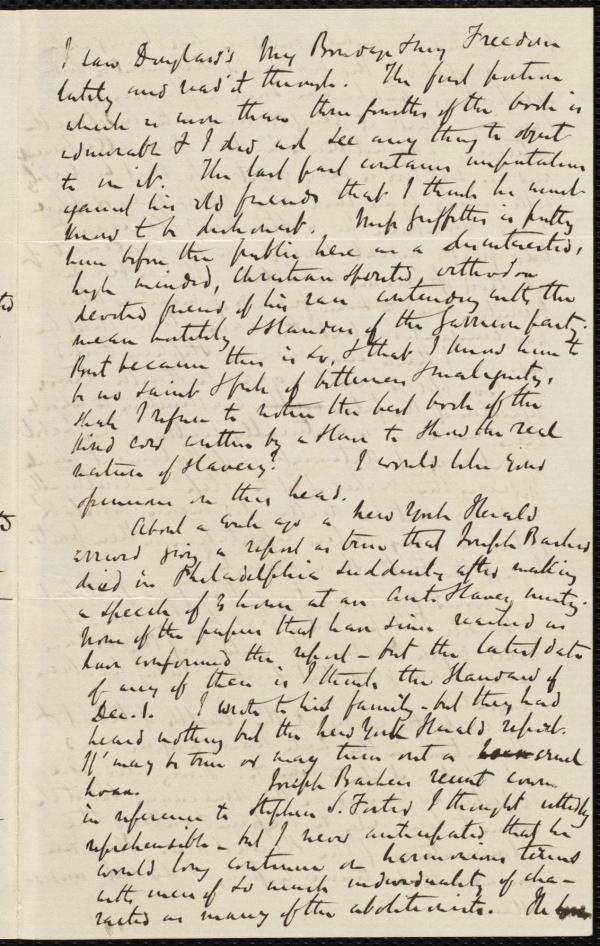 I saw Douglass's My Bondage & my Freedom
lately and read it through. The first portion
which is more than three fourths of the book is
admirable & I did not see any thing to object
to in it. The last part contains imputations
against his old friends that I think he must
know to be dishonest. Miss Griffiths is putting
him before the public here as a disinterested,
high minded, Christian spirited, orthodox
devoted friend of his race contending with the
mean hostility & slanders of the Garrison party.
But because this is so, & that I know him to
be no saint & full of bitterness & malignity,
shall I refuse to notice the best book of the
kind ever written by a slave to show the real
nature of slavery? I would like your
opinion on this head.
About a week ago a New York Herald
arrived giving a report as true that Joseph Barker
died in Philadelphia suddenly after making
a speech of 3 hours at an Anti-Slavery meeting.
None of the papers that have since reached us
have confirmed the report - but the latest date
of any of them is I think the Standard of
Dec. 1. I wrote to his family - but they had
heard nothing but the New York Herald report.
It may be true or may turn out a cruel
hoax. Joseph Barker's recent course
in reference to Stephen S. Foster I thought utterly
reprehensible - but I never anticipated that he
would long continue on harmonious terms
with men of so much individuality of cha-
racter as many of the abolitionists. He